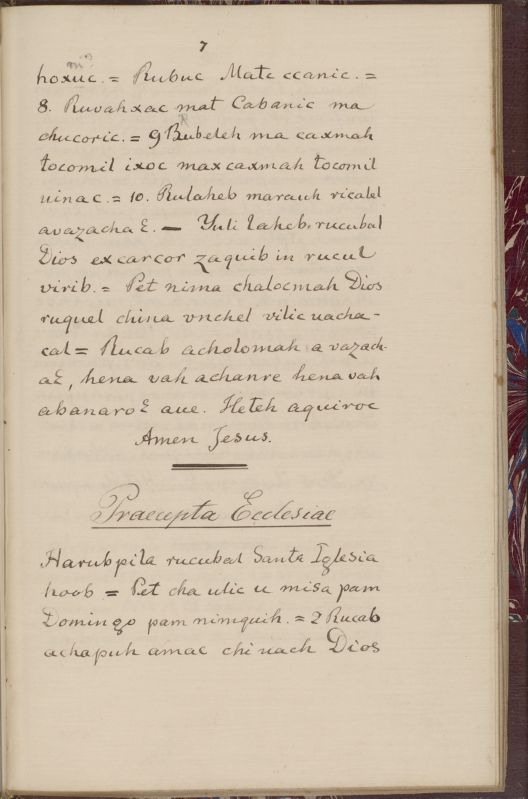 7
hoxuc. = Rubuc Mate ecanic. =
8. Ruvahxac mat Cabanic ma
chucoric. = 9 Bubeleh ma caxmah
tocomil ixoc max caxmah tocomil
uinac. = 10. Rulaheb marauh ricalel
avazacha Ɛ. — Yuli laheb. rucubal
Dios excarcor zaquib in rucul
virib. = Pet nima chalocmah Dios
ruquel china vnchel vilic uacha-
cal = Rucab acholomah a vazach-
aƐ, hena vah achanre hena vah
abanaroƐ aue. Heteh aquiroc
Amen Jesus.
Praecepta Ecclesiae
Harubpila rucubal Santa Iglesia
hoob = Pet cha ulic u misa pam
Domingo pam nimquih. = 2 Rucab
achapuh amac chi uach Dios